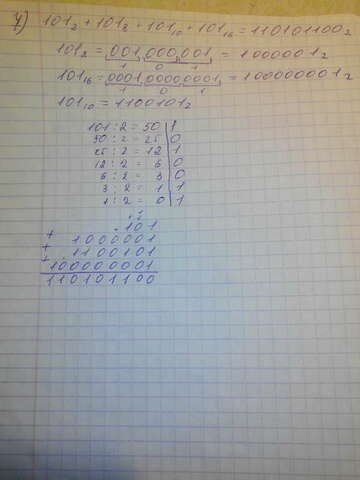 4) 101₂ + 101₈ + 101₁₀ + 101₁₆ = 110101100₂
101₈ = 001 000 001 = 1000001₂
1 0 1
101₁₆ = 0001 0000 0001 = 100000001₂
1 0 1
101₁₀ = 1100101₂
101 : 2 = 50 | 1
50 : 2 = 25 | 0
25 : 2 = 12 | 1
12 : 2 = 6 | 0
6 : 2 = 3 | 0
3 : 2 = 1 | 1
1 : 2 = 0 | 1
101
+ 1000001
+ 1100101
+ 100000001
110101100